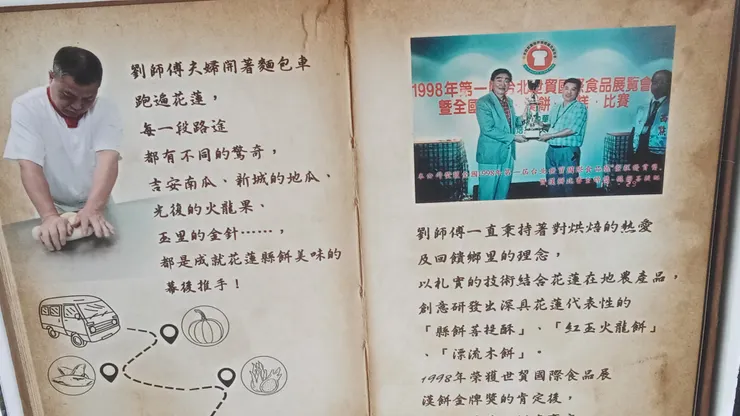 劉師傅夫婦開著麵包車
跑遍花蓮，
每一段路途
都有不同的驚奇，
吉安南瓜、新城的地瓜、
光復的火龍果、
玉里的金針……，
都是成就花蓮縣餅美味的
幕後推手！
1998年第一屆台北世貿國際食品展覽會
暨全國
比賽
劉師傅一直秉持著對烘焙的熱愛
及回饋鄉里的理念，
以札實的技術結合花蓮在地農產品，
創意研發出深具花蓮代表性的
「縣餅菩提酥」、「紅玉火龍餅」
、「漂流木餅」。
1998年榮獲世貿國際食品展
漢餅金牌獎的肯定後，